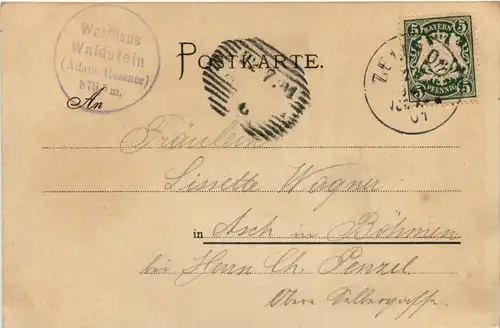 Waldhaus
Waldstein
(Adam Rosner)
879,8 m.
POSTKARTE.
BAYERN
5 5
5 PFENNIG 5
ZELL
01
An
Fräulein
Lisette Wagner
in Asch in Böhmen
bei Herrn Ch. Penzel
Obere Selbergasse.